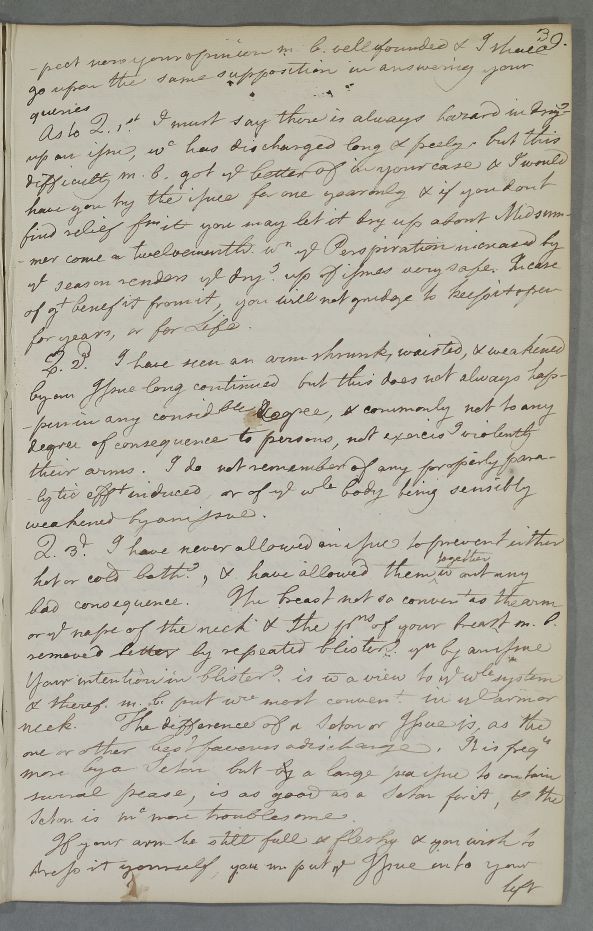 39.
-pect now your opinion m. b. well founded & I shall
go upon the same supposition in answering your
queries
As to Q. 1st I must say there is always hazard in dryg
up an issue, wc has discharged long & freely, but this
difficulty m. b. got ye better of in your case & I would
have you try the issue for one year only & if you dont
find relief from it you may let it dry up about Midsum-
-mer come a twelvemonth wn ye Perspiration increased by
ye season renders ye dryg up of issues very safe. In case
of gt benefit from it, you will not grudge to keep it open
for years, or for Life.
Q. 2d. I have seen an arm shrunk, waisted, & weakened
by an Issue long continued but this does not always hap-
-pen in any considble degree, & commonly not to any
degree of consequence to persons, not exercisg violently
their arms. I do not remember of any properly para-
lytic efft induced, or of ye wle body being sensibly
weakened by an issue.
Q. 3d. I have never allowed an issue to prevent either
hot or cold bathg, & have allowed them together wt out any
bad consequence. The breast not so convent as the arm
or ye nape of the neck & the of your breast m. b.
removed by repeated blisterg yn by an issue
Your intention in blisterg is wt a view to ye wle system
& theref. m. b. put wre most convent in ye arm or
neck. The difference of a Seton or Issue is, as the
one or other best favours a discharge. It is freqn
more by a Seton but by a large pea issue to contain
several pease, is as good as a Seton for it, & the
Seton is mc more troublesome.
If your arm be still full & fleshy & you wish to
dress it yourself, you m put ye Issue into your
left